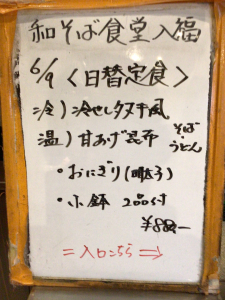 和そば食堂入福
6/9〈日替定食〉
冷)冷やしタヌキ風
温)甘あげ昆布
そば
・うどん
・おにぎり(明太子)
・小鉢 2品付
¥880-
=入口こちら⇒